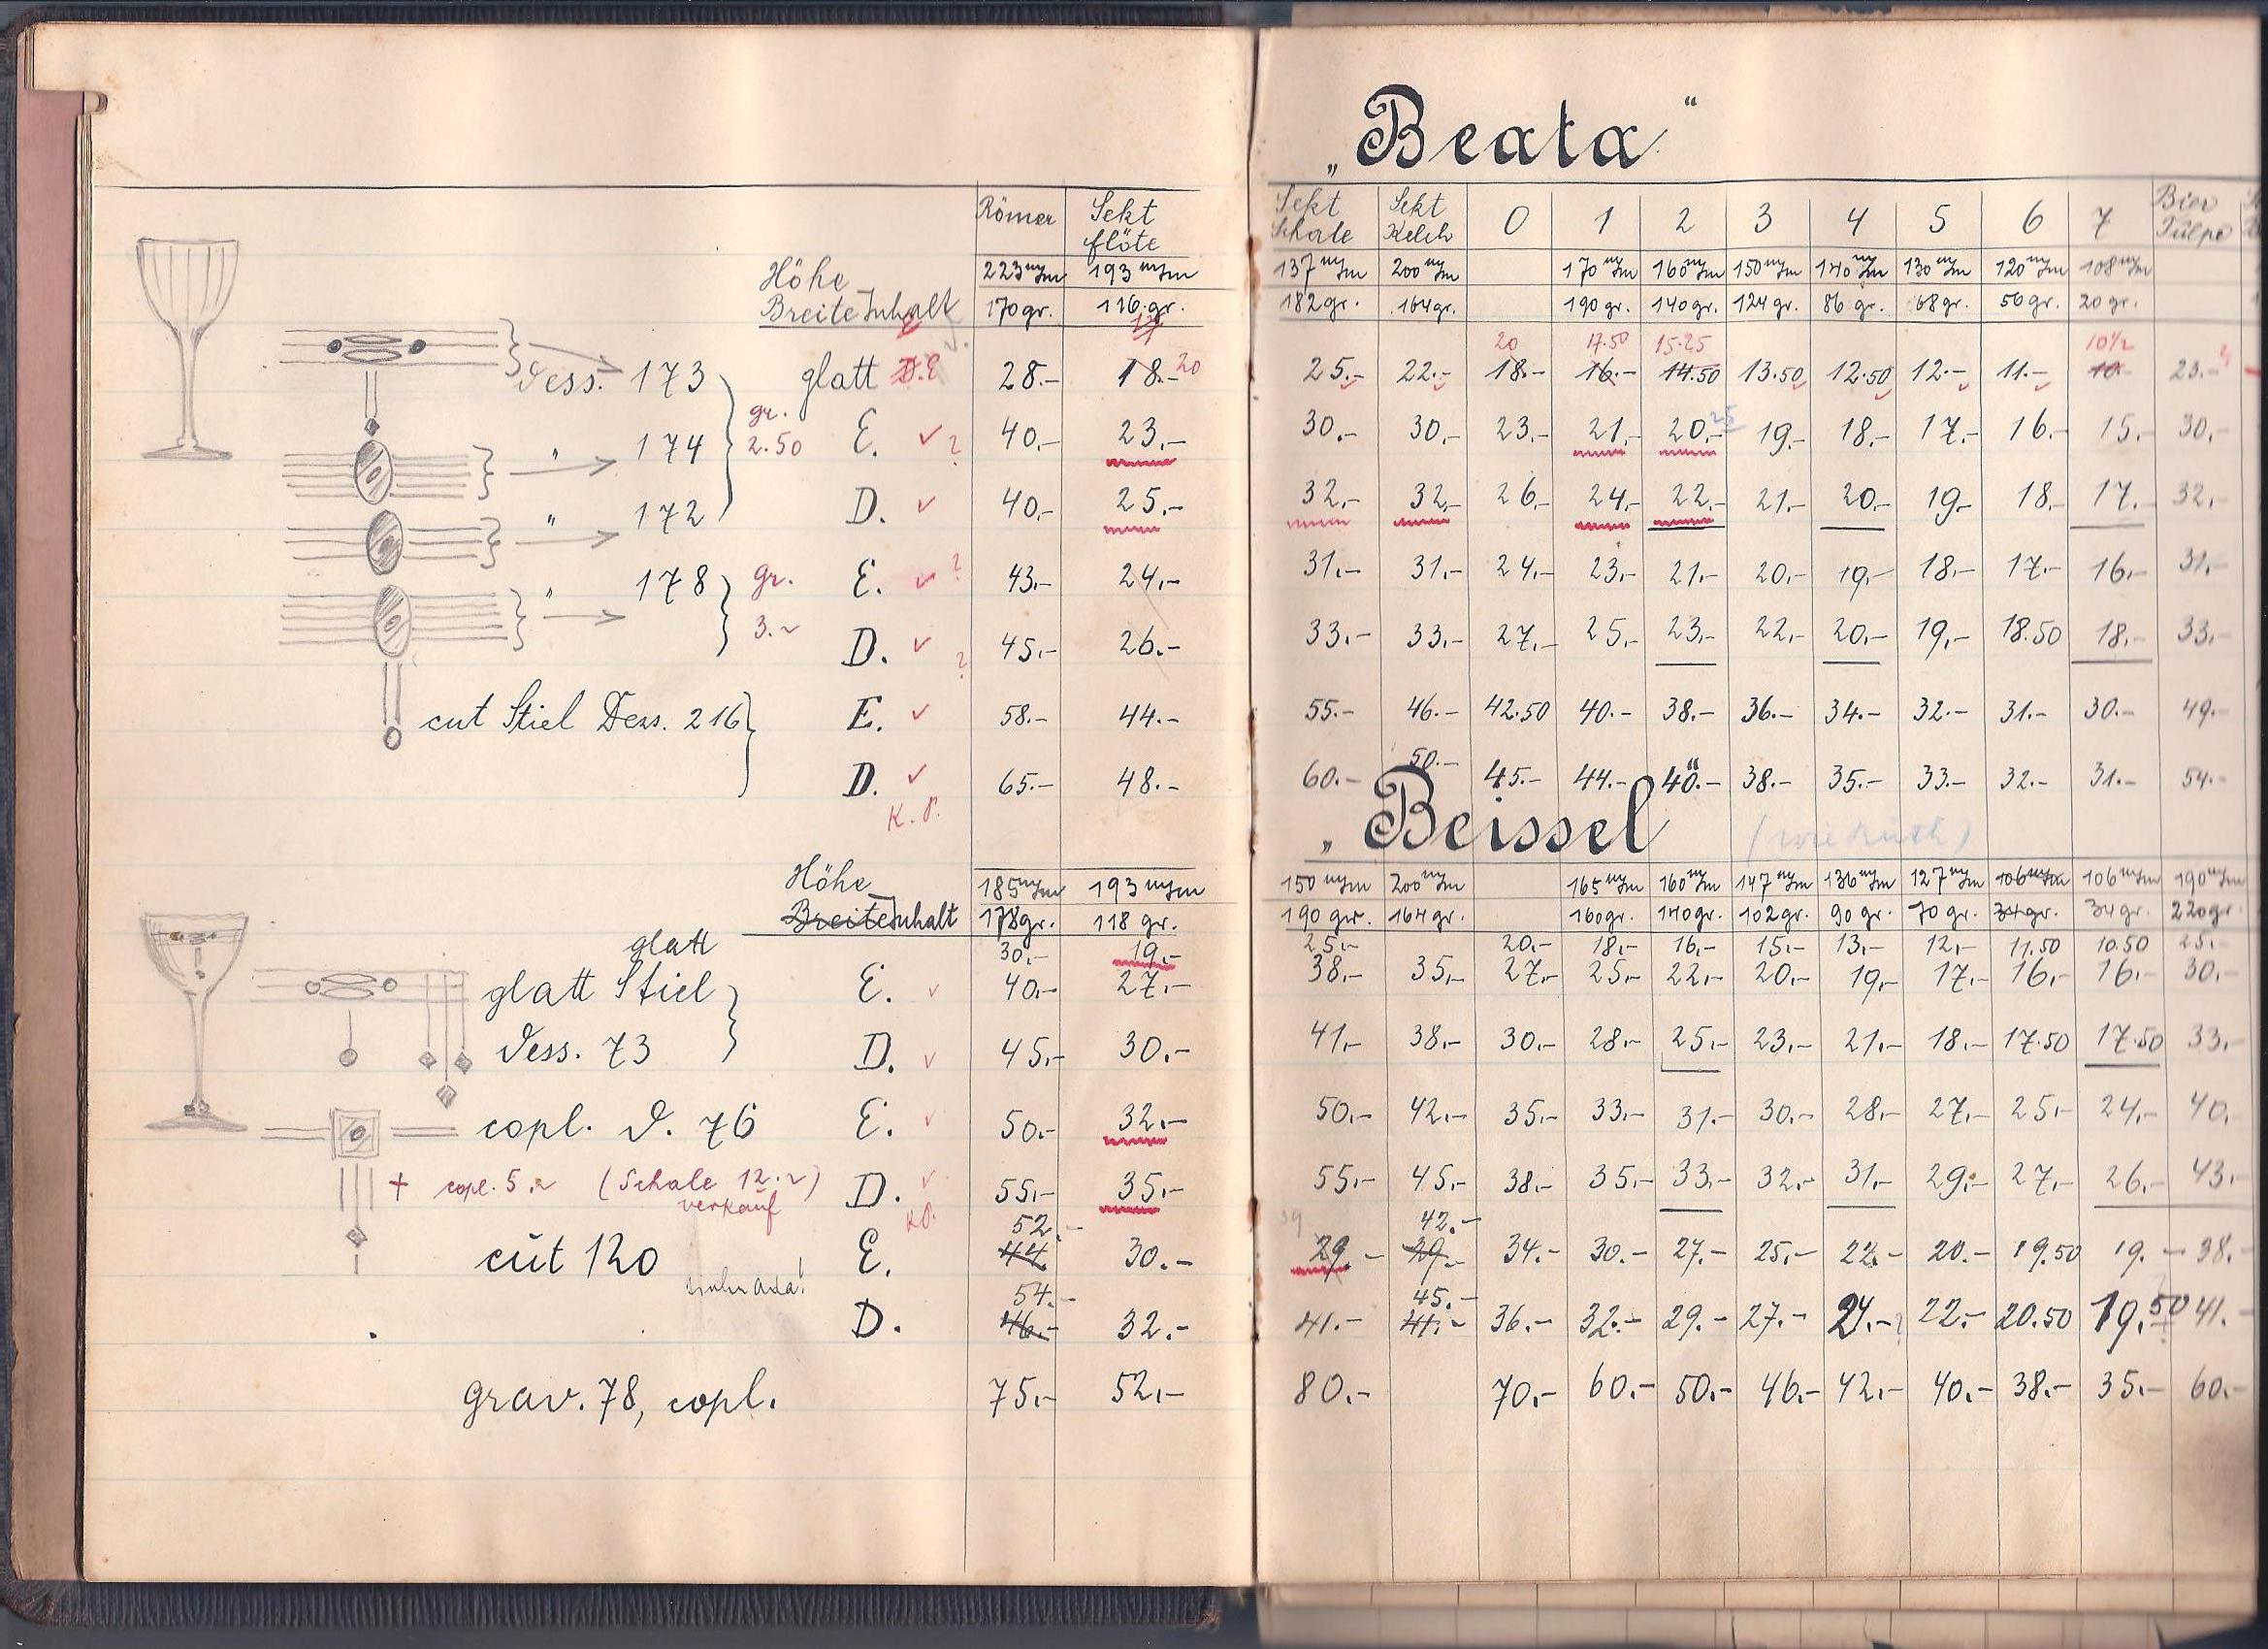 „Beata“
Römer Sekt flöte Sekt Schale Sekt Kelch 0 1 2 3 4 5 6 7 Bier Tülpe
Höhe 223 m/m 193 m/m 137 m/m 200 m/m 170 m/m 160 m/m 150 m/m 140 m/m 130 m/m 120 m/m 108 m/m
Breite Inhalt 170 gr. 116 gr. 182 gr. 164 gr. 190 gr. 140 gr. 124 gr. 86 gr. 68 gr. 56 gr. 20 gr.
20 17.50 15.25 10½
Dess. 173 glatt D.E 28.- 18.- 20 25.- 22.- 18.- 16.- 14.50 13.50 12.50 12.- 11.- 10.- 23.-
gr.
" 174 2.50 E. ? 40.- 23.- 30.- 30.- 23.- 21.- 20.- 25 19.- 18.- 17.- 16.- 15.- 30.-
" 172 D. 40.- 25.- 32.- 32.- 26.- 24.- 22.- 21.- 20.- 19.- 18.- 17.- 32.-
" 178 gr. E. ? 43.- 24.- 31.- 31.- 24.- 23.- 21.- 20.- 19.- 18.- 17.- 16.- 31.-
3.- D. ? 45.- 26.- 33.- 33.- 27.- 25.- 23.- 22.- 20.- 19.- 18.50 18.- 33.-
cut Stiel Dess. 216 E. 58.- 44.- 55.- 46.- 42.50 40.- 38.- 36.- 34.- 32.- 31.- 30.- 49.-
D. 65.- 48.- 60.- 50.- 45.- 44.- 40.- 38.- 35.- 33.- 32.- 31.- 54.-
K.P.
„Beissel“ (wie Ruth)
Höhe 185 m/m 193 m/m 150 m/m 200 m/m 165 m/m 160 m/m 147 m/m 136 m/m 127 m/m 106 m/m 106 m/m 190 m/m
Breite Inhalt 178 gr. 118 gr. 190 gr. 164 gr. 160 gr. 140 gr. 102 gr. 90 gr. 70 gr. 34 gr. 34 gr. 220 gr.
glatt 30.- 19.- 25.- 20.- 18.- 16.- 15.- 13.- 12.- 11.50 10.50 25.-
glatt Stiel E. 40.- 27.- 38.- 35.- 27.- 25.- 22.- 20.- 19.- 17.- 16.- 16.- 30.-
Dess. 73 D. 45.- 30.- 41.- 38.- 30.- 28.- 25.- 23.- 21.- 18.- 17.50 17.50 33.-
copl. D. 76 E. 50.- 32.- 50.- 42.- 35.- 33.- 31.- 30.- 28.- 27.- 25.- 24.- 40.-
+ copl. 5.- (Schale 12.-) D. 55.- 35.- 55.- 45.- 38.- 35.- 33.- 32.- 31.- 29.- 27.- 26.- 43.-
verkauf
52.- 39 42.-
cut 120 E. 44 30.- 29.- 29.- 34.- 30.- 27.- 25.- 22.- 20.- 19.50 19.- 38.-
54.- 45.-
D. 46.- 32.- 41.- 41.- 36.- 32.- 29.- 27.- 24.- 22.- 20.50 19.50 41.-
grav. 78, copl. 75.- 52.- 80.- 70.- 60.- 50.- 46.- 42.- 40.- 38.- 35.- 60.-